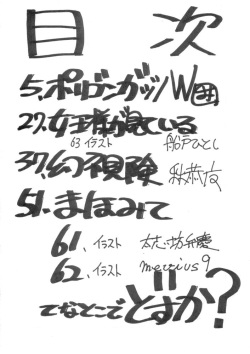 目次
5.ポリゴンガッツ/W団
27.女王様が見ている
63 イラスト 船戸ひとし
37.幻視険
51.まほみて
61.イラスト 太志坊弁慶
62.イラスト mercius9
てなとこでどすか?